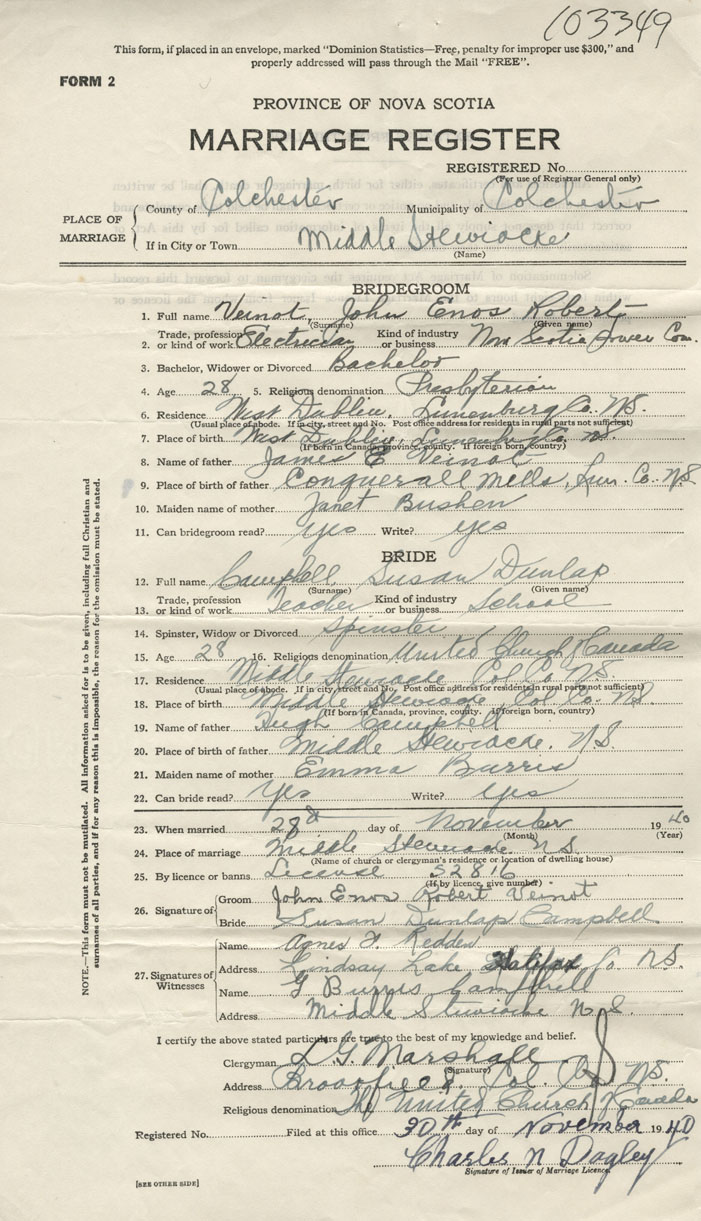 103349
This form, if placed in an envelope, marked "Dominion Statistics—Free, penalty for improper use $300," and
properly addressed will pass through the Mail "FREE".
FORM 2
PROVINCE OF NOVA SCOTIA
MARRIAGE REGISTER
REGISTERED No.
(For use of Registrar General only)
PLACE OF MARRIAGE
County of Colchester Municipality of Colchester
If in City or Town Middle Stewiacke
(Name)
BRIDEGROOM
1. Full name Veinot, John Enos Robert
(Surname) (Given name)
2. Trade, profession or kind of work Electrician Kind of industry or business Nova Scotia Power Com.
3. Bachelor, Widower or Divorced Bachelor
4. Age 28 5. Religious denomination Presbyterian
6. Residence West Dublin, Lunenburg Co. N.S.
(Usual place of abode. If in city, street and No. Post office address for residents in rural parts not sufficient)
7. Place of birth West Dublin, Lunenburg Co. N.S.
(If born in Canada, province, county. If foreign born, country)
8. Name of father James E Veinot
9. Place of birth of father Conquerall Mills, Lun. Co. N.S.
10. Maiden name of mother Janet Bushen
11. Can bridegroom read? yes Write? yes
BRIDE
12. Full name Campbell, Susan Dunlap
(Surname) (Given name)
13. Trade, profession or kind of work Teacher Kind of industry or business School
14. Spinster, Widow or Divorced Spinster
15. Age 28 16. Religious denomination United Church of Canada
17. Residence Middle Stewiacke Col. Co. N.S.
(Usual place of abode. If in city, street and No. Post office address for residents in rural parts not sufficient)
18. Place of birth Middle Stewiacke, Col. Co. N.S.
(If born in Canada, province, county. If foreign born, country)
19. Name of father Hugh Campbell
20. Place of birth of father Middle Stewiacke, N.S.
21. Maiden name of mother Emma Burris
22. Can bride read? Yes Write? yes
23. When married 28th day of November 1940
(Month) (Year)
24. Place of marriage Middle Stewiacke N.S.
(Name of church or clergyman's residence or location of dwelling house)
25. By licence or banns License 32816
(If by licence, give number)
26. Signature of
Groom John Enos Robert Veinot
Bride Susan Dunlap Campbell
27. Signatures of Witnesses
Name Agnes F. Redden
Address Lindsay Lake Halifax Co N.S.
Name G Burris Campbell
Address Middle Stewiacke N.S.
I certify the above stated particulars are true to the best of my knowledge and belief.
Clergyman L. G. Marshall
(Signature)
Address Brookfield, Col. Co. N.S.
Religious denomination The United Church of Canada
Registered No. Filed at this office 30th day of November 1940
Charles N Dagley
Signature of Issuer of Marriage Licence.
[SEE OTHER SIDE]
NOTE.—This form must not be mutilated. All information asked for is to be given, including full Christian and
surnames of all parties, and if for any reason this is impossible, the reason for the omission must be stated.